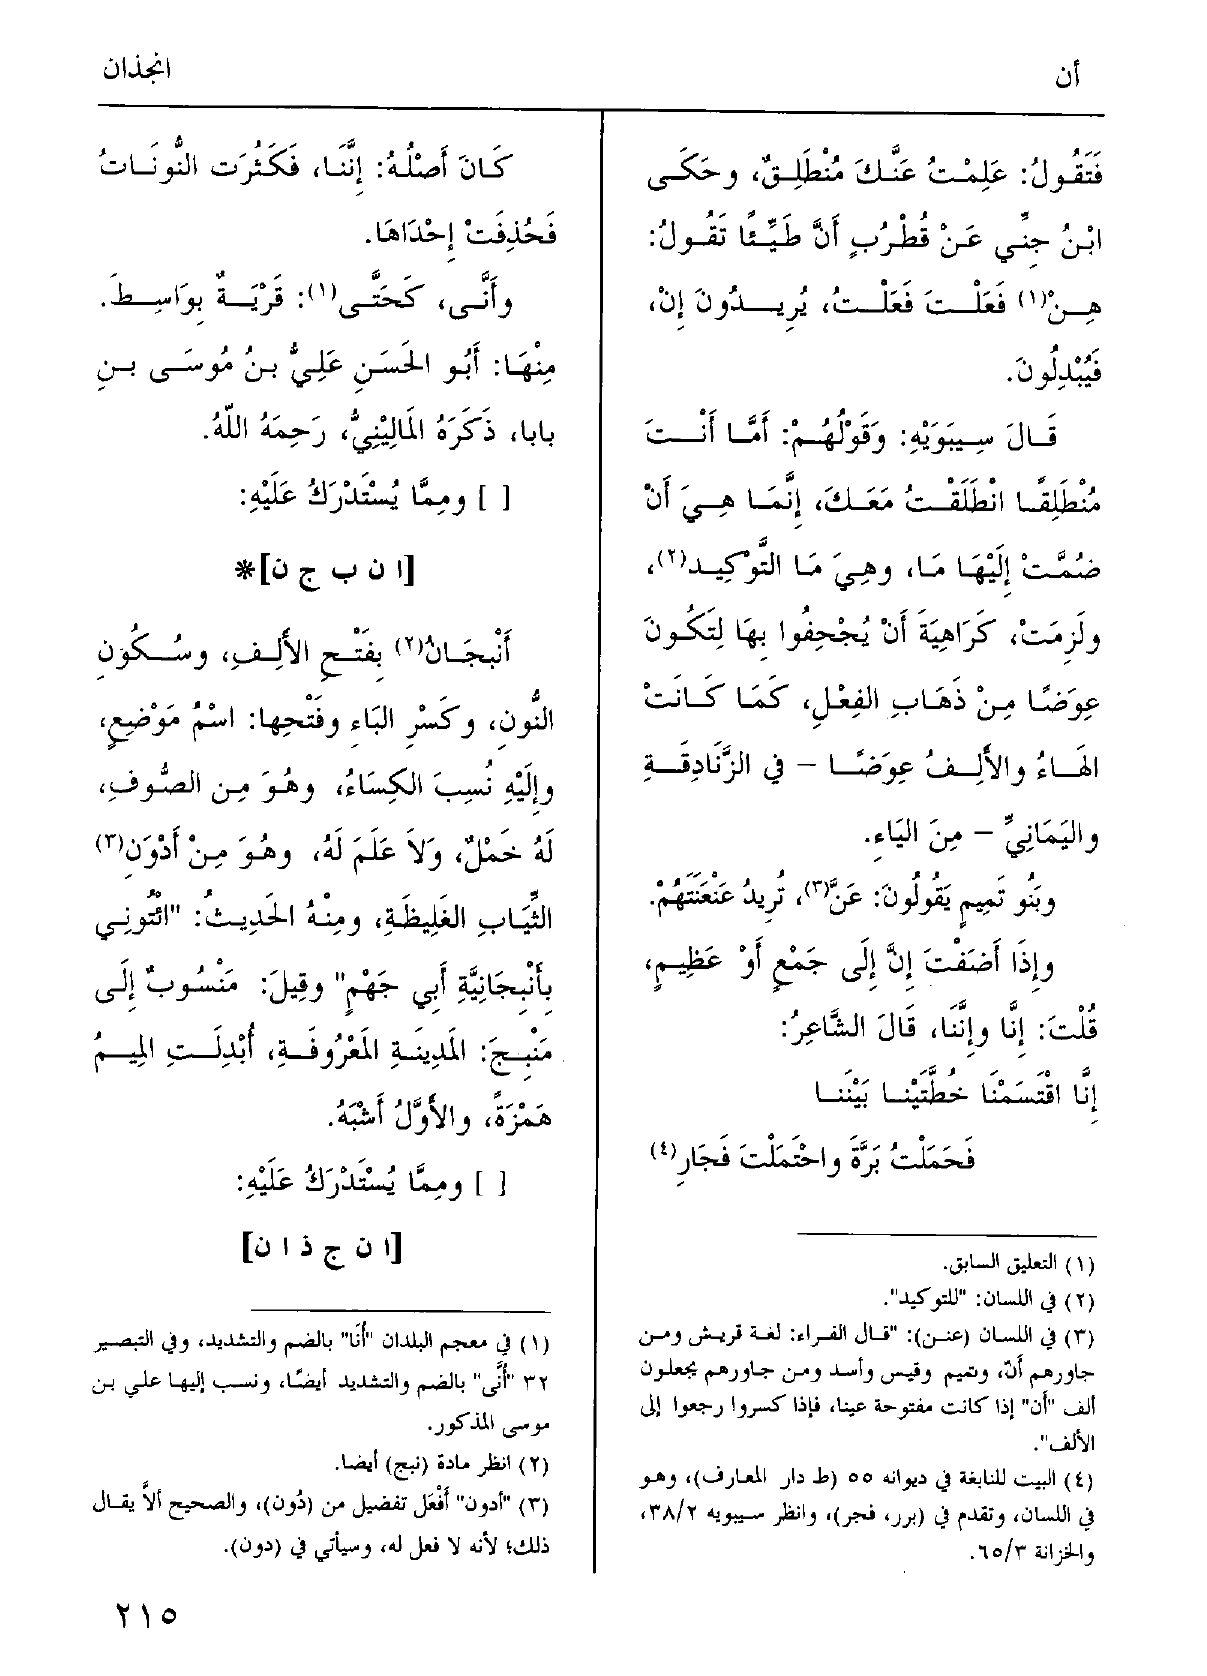 أن
انجذان
فَتَقُولُ: عَلِمْتُ عَنَّكَ مُنْطَلِقٌ، وحَكَى
ابْنُ جِنِّي عَنْ قُطْرُبٍ أَنَّ طَيِّئًا تَقُولُ:
هِنْ(١) فَعَلْتَ فَعَلْتُ، يُرِيدُونَ إِنْ،
فَيُبْدِلُونَ.
قَالَ سِيبَوَيْهِ: وَقَوْلُهُمْ: أَمَّا أَنْتَ
مُنْطَلِقًا انْطَلَقْتُ مَعَكَ، إِنَّمَا هِيَ أَنْ
ضُمَّتْ إِلَيْهَا مَا، وهِيَ مَا التَّوْكِيدِ(٢)،
ولَزِمَتْ، كَرَاهِيَةَ أَنْ يُجْحِفُوا بِهَا لِتَكُونَ
عِوَضًا مِنْ ذَهَابِ الفِعْلِ، كَمَا كَانَتْ
الهَاءُ والأَلِفُ عِوَضًا – في الزَّنَادِقَةِ
واليَمَانِيِّ – مِنَ اليَاءِ.
وبَنُو تَمِيمٍ يَقُولُونَ: عَنَّ(٣)، تُرِيدُ عَنْعَنَتَهُمْ.
وإِذَا أَضَفْتَ إِنَّ إِلَى جَمْعٍ أَوْ عَظِيمٍ،
قُلْتَ: إِنَّا وإِنَّنَا، قَالَ الشَّاعِرُ:
إِنَّا اقْتَسَمْنَا خُطَّتَيْنَا بَيْنَنَا
فَحَمَلْتُ بَرَّةَ واحْتَمَلْتَ فَجَارِ(٤)
(١) التعليق السابق.
(٢) في اللسان: "للتوكيد".
(٣) في اللسان (عنن): "قال الفراء: لغة قريش ومن
جاورهم أنّ، وتميم وقيس وأسد ومن جاورهم يجعلون
ألف "أن" إذا كانت مفتوحة عينا، فإذا كسروا رجعوا إلى
الألف".
(٤) البيت للنابغة في ديوانه ٥٥ (ط دار المعارف)، وهو
في اللسان، وتقدم في (برر، فجر)، وانظر سيبويه ٣٨/٢،
والخزانة ٦٥/٣.
كَانَ أَصْلُهُ: إِنَّنَا، فَكَثُرَت النُّونَاتُ
فَحُذِفَتْ إِحْدَاهَا.
وأَنَّى، كَحَتَّى(١): قَرْيَةٌ بِوَاسِطَ.
مِنْهَا: أَبُو الحَسَنِ عَلِيُّ بنُ مُوسَى بنِ
بابا، ذَكَرَهُ المَالِينِيُّ، رَحِمَهُ اللّهُ.
[ ] ومِمَّا يُسْتَدْرَكُ عَلَيْهِ:
[ا ن ب ج ن]*
أَنْبَجَانُ(٢) بِفَتْحِ الأَلِفِ، وسُكُونِ
النُّونِ، وكَسْرِ البَاءِ وفَتْحِها: اسْمُ مَوْضِعٍ،
وإِلَيْهِ نُسِبَ الكِسَاءُ، وهُوَ مِن الصُّوفِ،
لَهُ خَمْلٌ، وَلاَ عَلَمَ لَهُ، وهُوَ مِنْ أَدْوَنِ(٣)
الثِّيَابِ الغَلِيظَةِ، ومِنْهُ الحَدِيثُ: "ائْتُونِي
بِأَنْبِجَانِيَّةِ أَبِي جَهْمٍ" وقِيلَ: مَنْسُوبٌ إِلَى
مَنْبِجَ: المَدِينَةِ المَعْرُوفَةِ، أُبْدِلَتِ المِيمُ
هَمْزَةً، والأَوَّلُ أَشْبَهُ.
[ ] ومِمَّا يُسْتَدْرَكُ عَلَيْهِ:
[ا ن ج ذ ا ن]
(١) في معجم البلدان "أُنَّا" بالضم والتشديد، وفي التبصير
٣٢ "أُنَّى" بالضم والتشديد أيضًا، ونسب إليها علي بن
موسى المذكور.
(٢) انظر مادة (نبج) أيضا.
(٣) "أدون" أَفْعَل تفضيل من (دُون)، والصحيح ألاَّ يقال
ذلك؛ لأنه لا فعل له، وسيأتي في (دون).
٢١٥